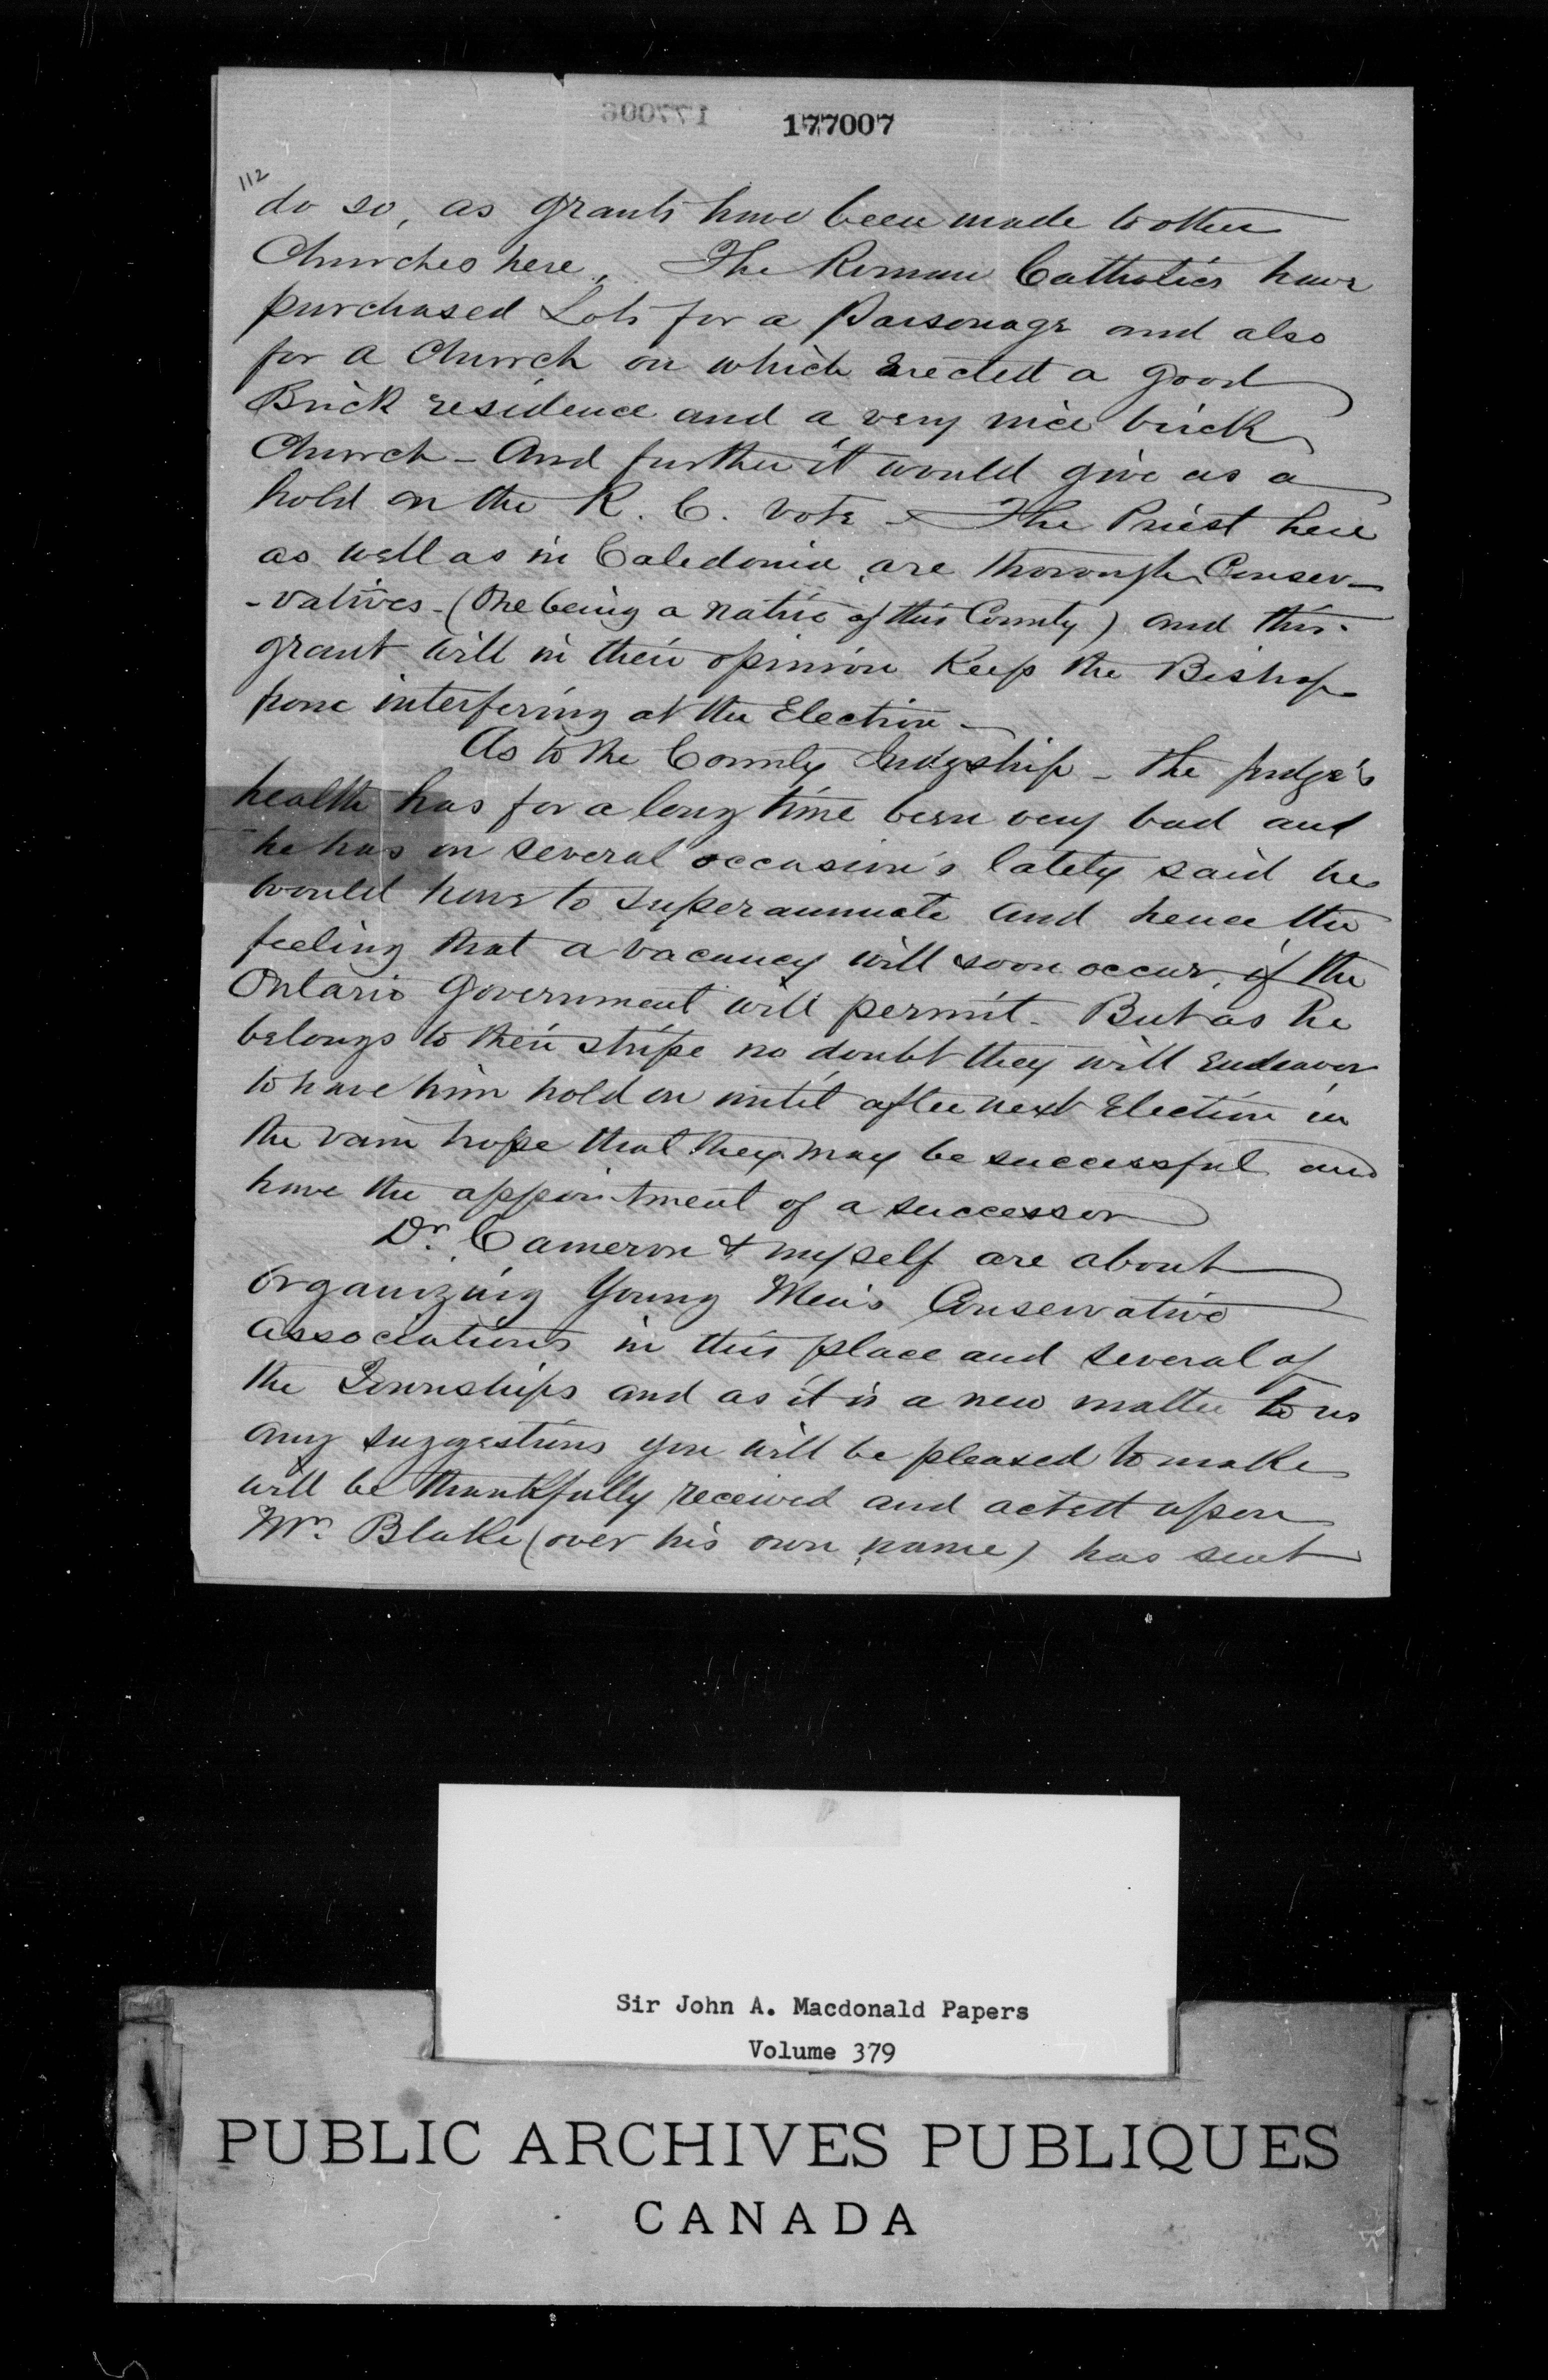 177006
177007
112
do so, as grants have been made to other
Churches here, The Roman Catholics have
purchased Lots for a Parsonage and also
for a Church on which erected a good
Brick residence and a very nice brick
Church - And further it would give us a
hold on the R. C. vote - The Priest here
as well as in Caledonia are thorough Conser-
-vatives - (One being a native of this County) and this
grant will in their opinion keep the Bishop
from interfering at the Election -
As to the County Judgeship - the judge's
health has for a long time been very bad and
he has on several occasion's lately said he
would have to superannuate and hence the
feeling that a vacancy will soon occur, if the
Ontario Government will permit. But as he
belongs to their stripe no doubt they will Endeavor
to have him hold on until after next Election in
the vain hope that they may be successful and
have the appointment of a successor
Dr. Cameron & myself are about
organizing Young Men's Conservative
Associations in this place and several of
the Townships and as it is a new matter to us
any suggestions you will be pleased to make
will be thankfully received and acted upon
Mr. Blake (over his own name) has sent
Sir John A. Macdonald Papers
Volume 379
PUBLIC ARCHIVES PUBLIQUES
CANADA